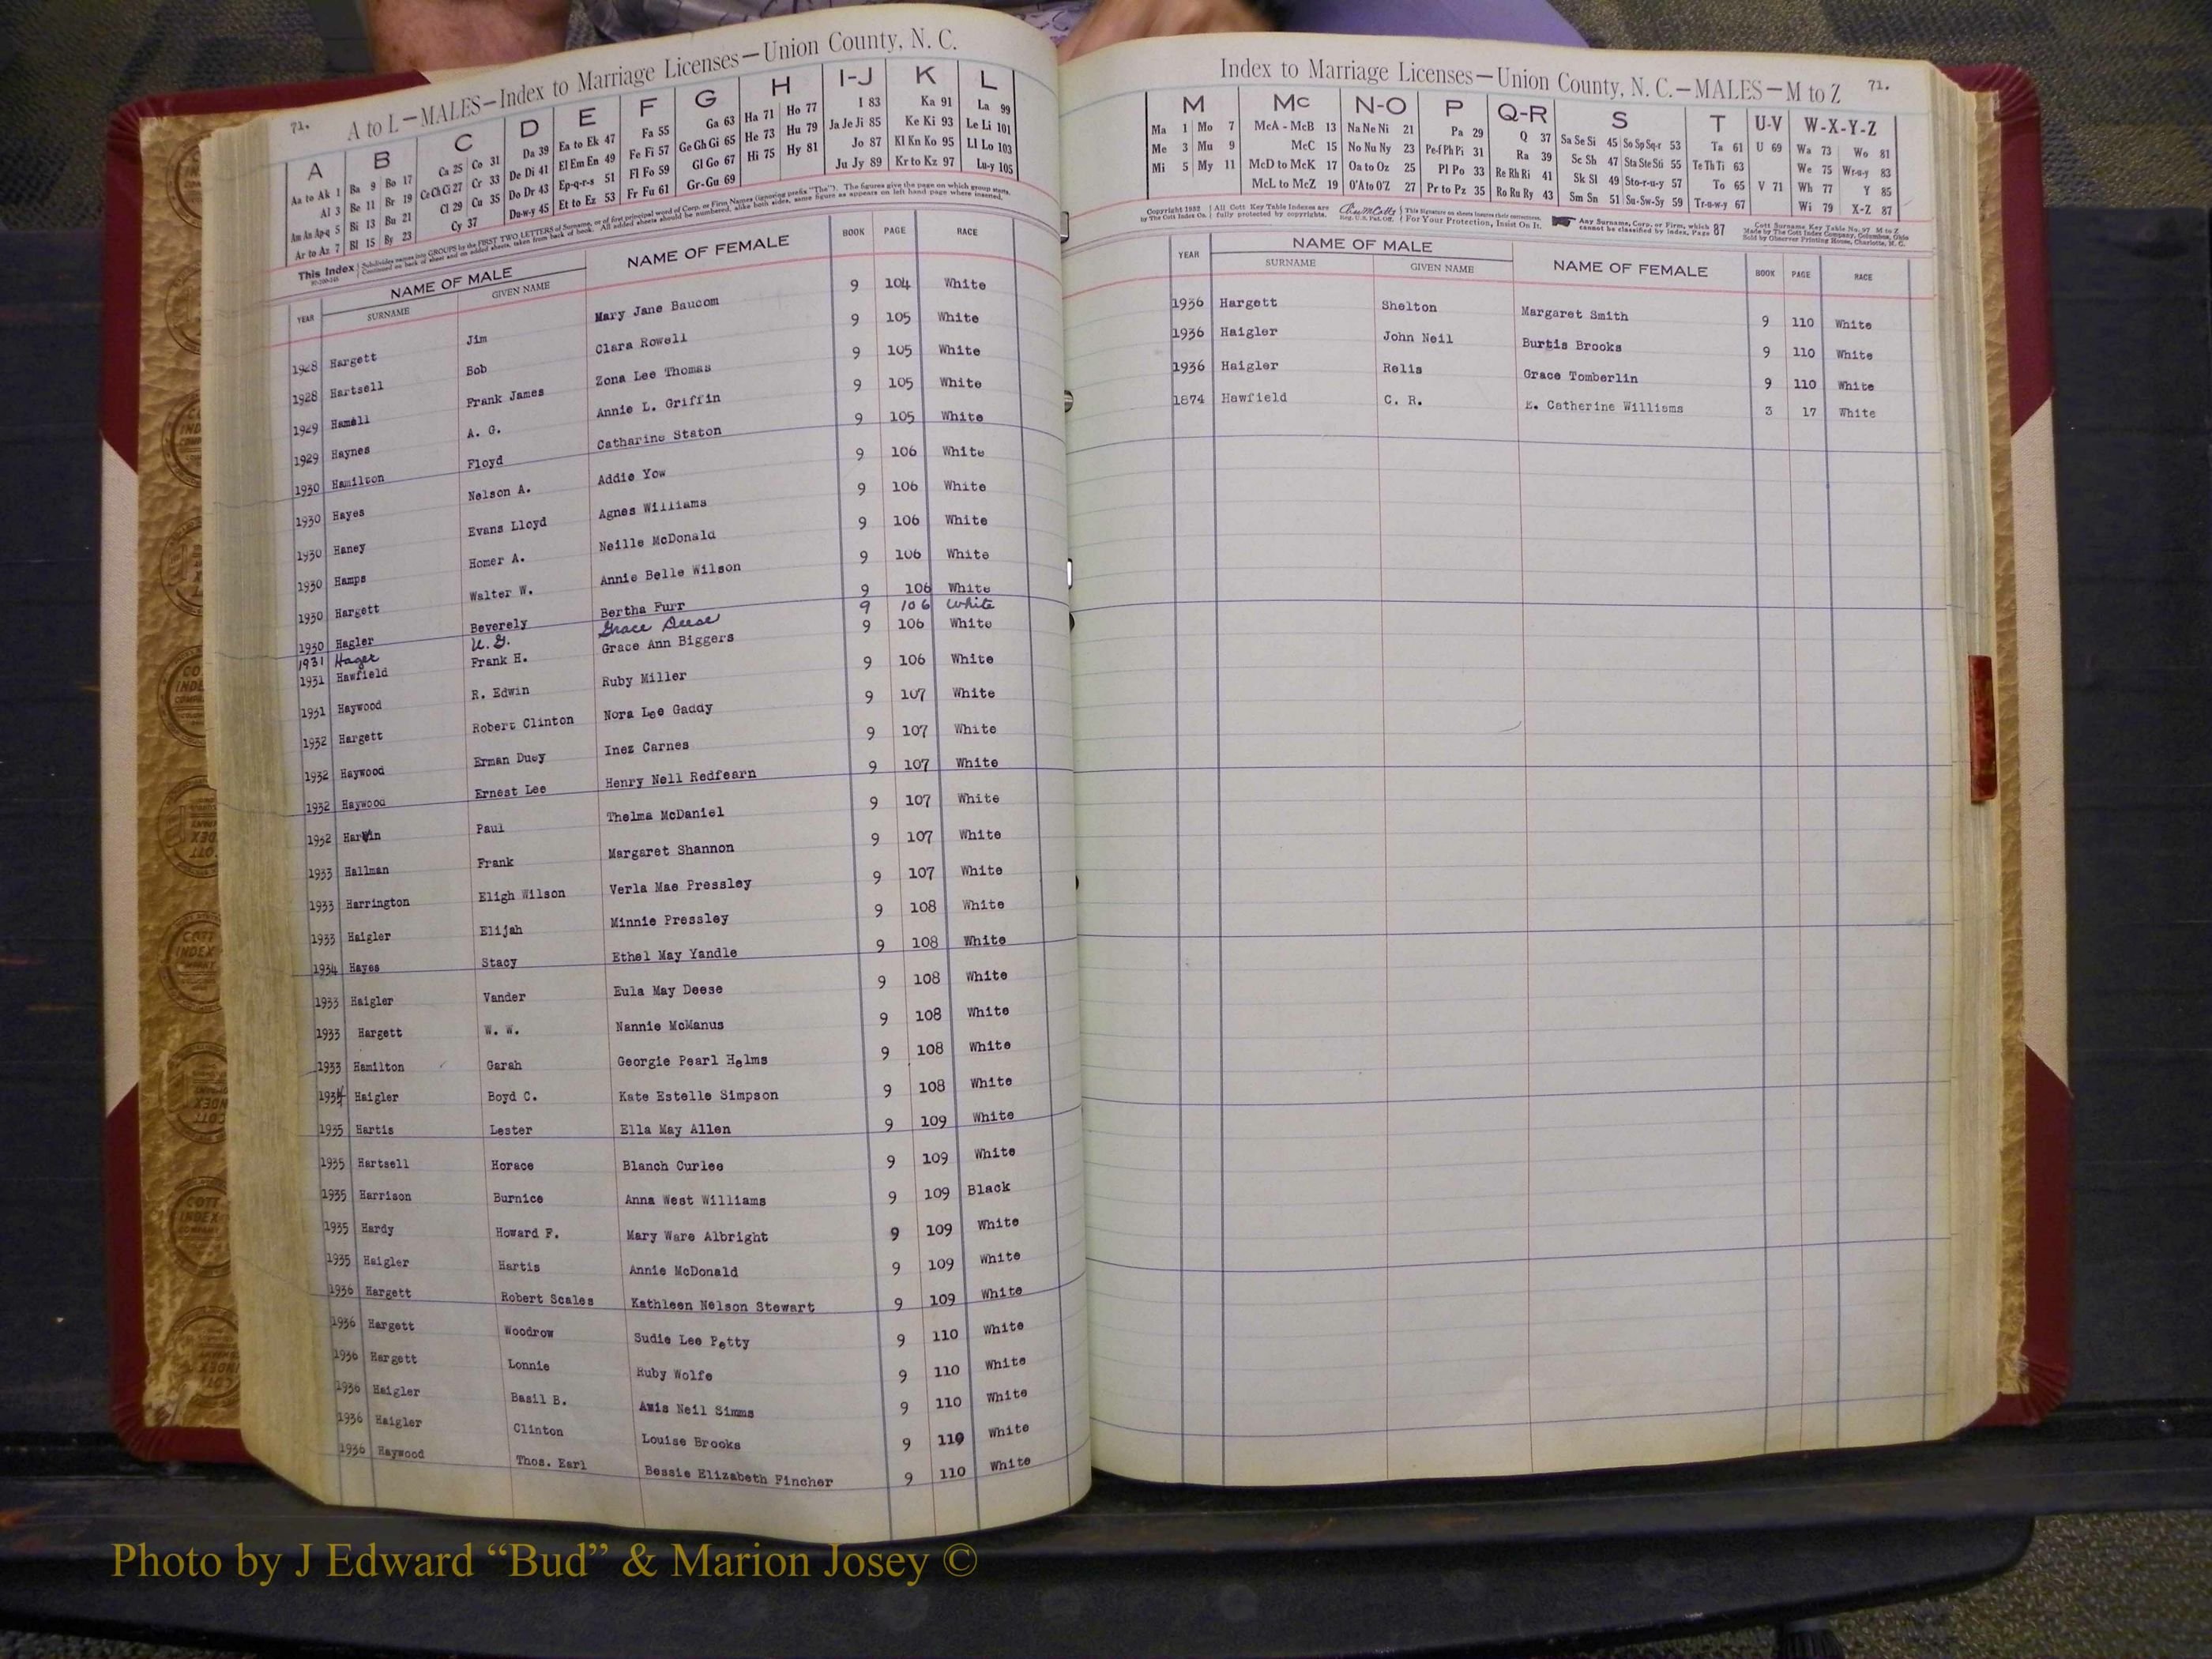 71. A to L—MALES—Index to Marriage Licenses—Union County, N. C.
A B C D E F G H I-J K L
Aa to Ak 1 Ba 9 Bo 17 Ca 25 Co 31 Da 39 Ea to Ek 47 Fa 55 Ga 63 Ha 71 Ho 77 I 83 Ka 91 La 99
Al 3 Be 11 Br 19 Ce Ch Ci 27 Cr 33 De Di 41 El Em En 49 Fe Fi 57 Ge Gh Gi 65 He 73 Hu 79 Ja Je Ji 85 Ke Ki 93 Le Li 101
Am An Ap-q 5 Bi 13 Bu 21 Cl 29 Cu 35 Do Dr 43 Ep-q-r-s 51 Fl Fo 59 Gl Go 67 Hi 75 Hy 81 Jo 87 Kl Kn Ko 95 Ll Lo 103
Ar to Az 7 Bl 15 By 23 Cy 37 Du-w-y 45 Et to Ez 53 Fr Fu 61 Gr-Gu 69 Ju Jy 89 Kr to Kz 97 Lu-y 105
This Index Subdivides names into GROUPS by the FIRST TWO LETTERS of Surname, or of first principal word of Corp. or Firm Names (ignoring prefix "The"). The figures give the page on which group starts.
Continued on back of sheet and on added sheets, taken from back of book. All added sheets should be numbered, alike both sides, same figure as appears on left hand page where inserted.
YEAR NAME OF MALE NAME OF FEMALE BOOK PAGE RACE
SURNAME GIVEN NAME
1928 Hargett Jim Mary Jane Baucom 9 104 White
1928 Hartsell Bob Clara Rowell 9 105 White
1929 Hamell Frank James Zona Lee Thomas 9 105 White
1929 Haynes A. G. Annie L. Griffin 9 105 White
1930 Hamilton Floyd Catharine Staton 9 105 White
1930 Hayes Nelson A. Addie Yow 9 106 White
1930 Haney Evans Lloyd Agnes Williams 9 106 White
1930 Hamps Homer A. Neille McDonald 9 106 White
1930 Hargett Walter W. Annie Belle Wilson 9 106 White
1930 Hagler Beverely Bertha Furr 9 106 White
1931 Hager U. G. Grace Deese 9 106 White
1931 Hawfield Frank H. Grace Ann Biggers 9 106 White
1931 Haywood R. Edwin Ruby Miller 9 106 White
1932 Hargett Robert Clinton Nora Lee Gaddy 9 107 White
1932 Haywood Erman Duey Inez Carnes 9 107 White
1932 Haywood Ernest Lee Henry Nell Redfearn 9 107 White
1932 Harvin Paul Thelma McDaniel 9 107 White
1933 Hallman Frank Margaret Shannon 9 107 White
1933 Harrington Eligh Wilson Verla Mae Pressley 9 107 White
1933 Haigler Elijah Minnie Pressley 9 108 White
1934 Hayes Stacy Ethel May Yandle 9 108 White
1933 Haigler Vander Eula May Deese 9 108 White
1933 Hargett W. W. Nannie McManus 9 108 White
1933 Hamilton Garah Georgie Pearl Helms 9 108 White
1934 Haigler Boyd C. Kate Estelle Simpson 9 108 White
1935 Hartis Lester Ella May Allen 9 109 White
1935 Hartsell Horace Blanch Curlee 9 109 White
1935 Harrison Burnice Anna West Williams 9 109 Black
1935 Hardy Howard F. Mary Ware Albright 9 109 White
1935 Haigler Hartis Annie McDonald 9 109 White
1936 Hargett Robert Scales Kathleen Nelson Stewart 9 109 White
1936 Hargett Woodrow Sudie Lee Petty 9 110 White
1936 Hargett Lonnie Ruby Wolfe 9 110 White
1936 Haigler Basil B. Amis Neil Simms 9 110 White
1936 Haigler Clinton Louise Brooks 9 110 White
1936 Haywood Thos. Earl Bessie Elizabeth Fincher 9 110 White
Index to Marriage Licenses—Union County, N. C.—MALES—M to Z 71.
M Mc N-O P Q-R S T U-V W-X-Y-Z
Ma 1 Mo 7 McA - McB 13 Na Ne Ni 21 Pa 29 Q 37 Sa Se Si 45 So Sp Sq-r 53 Ta 61 U 69 Wa 73 Wo 81
Me 3 Mu 9 McC 15 No Nu Ny 23 Pe-f Ph Pi 31 Ra 39 Sc Sh 47 Sta Ste Sti 55 Te Th Ti 63 We 75 Wr-u-y 83
Mi 5 My 11 McD to McK 17 Oa to Oz 25 Pl Po 33 Re Rh Ri 41 Sk Sl 49 Sto-r-u-y 57 To 65 V 71 Wh 77 Y 85
McL to McZ 19 O'A to O'Z 27 Pr to Pz 35 Ro Ru Ry 43 Sm Sn 51 Su-Sw-Sy 59 Tr-u-w-y 67 Wi 79 X-Z 87
Any Surname, Corp. or Firm, which cannot be classified by index, Page 87
YEAR NAME OF MALE NAME OF FEMALE BOOK PAGE RACE
SURNAME GIVEN NAME
1936 Hargett Shelton Margaret Smith 9 110 White
1936 Haigler John Neil Burtis Brooks 9 110 White
1936 Haigler Relis Grace Tomberlin 9 110 White
1874 Hawfield C. R. E. Catherine Williams 3 17 White
Photo by J Edward “Bud” & Marion Josey ©